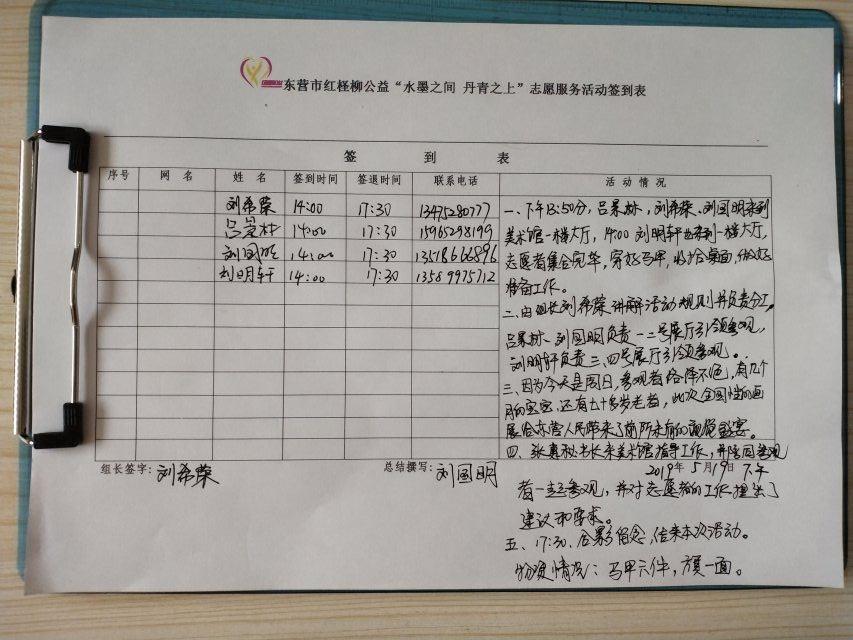 东营市红柽柳公益“水墨之间 丹青之上”志愿服务活动签到表
签 到 表
序号 网 名 姓 名 签到时间 签退时间 联系电话 活 动 情 况
刘希荣 14:00 17:30 13475280777
吕景林 14:00 17:30 15965298199
刘国明 14:00 17:30 13518666896
刘明轩 14:00 17:30 13589975712
一、下午13:50分,吕景林,刘希荣、刘国明来到
美术馆一楼大厅,14:00 刘明轩也来到一楼大厅,
志愿者集合完毕,穿好马甲,收拾桌面,做好
准备工作。
二、由组长刘希荣讲解活动规则并负责分工。
吕景林、刘国明负责一二号展厅引领参观,
刘明轩负责三、四号展厅引领参观。
三、因为今天是周日,参观者络绎不绝,有几个
月的宝宝,还有七十多岁老者,此次全国性的画
展给东营人民带来了前所未有的视觉盛宴。
四、张真秘书长来美术馆指导工作,并陪同参观
组长签字:刘希荣 总结撰写:刘国明 2019年5月19日 下午
者一起参观,并对志愿者的工作提出了
建议和要求。
五、17:30、合影留念,结束本次活动。
物资情况:马甲六件,旗一面。